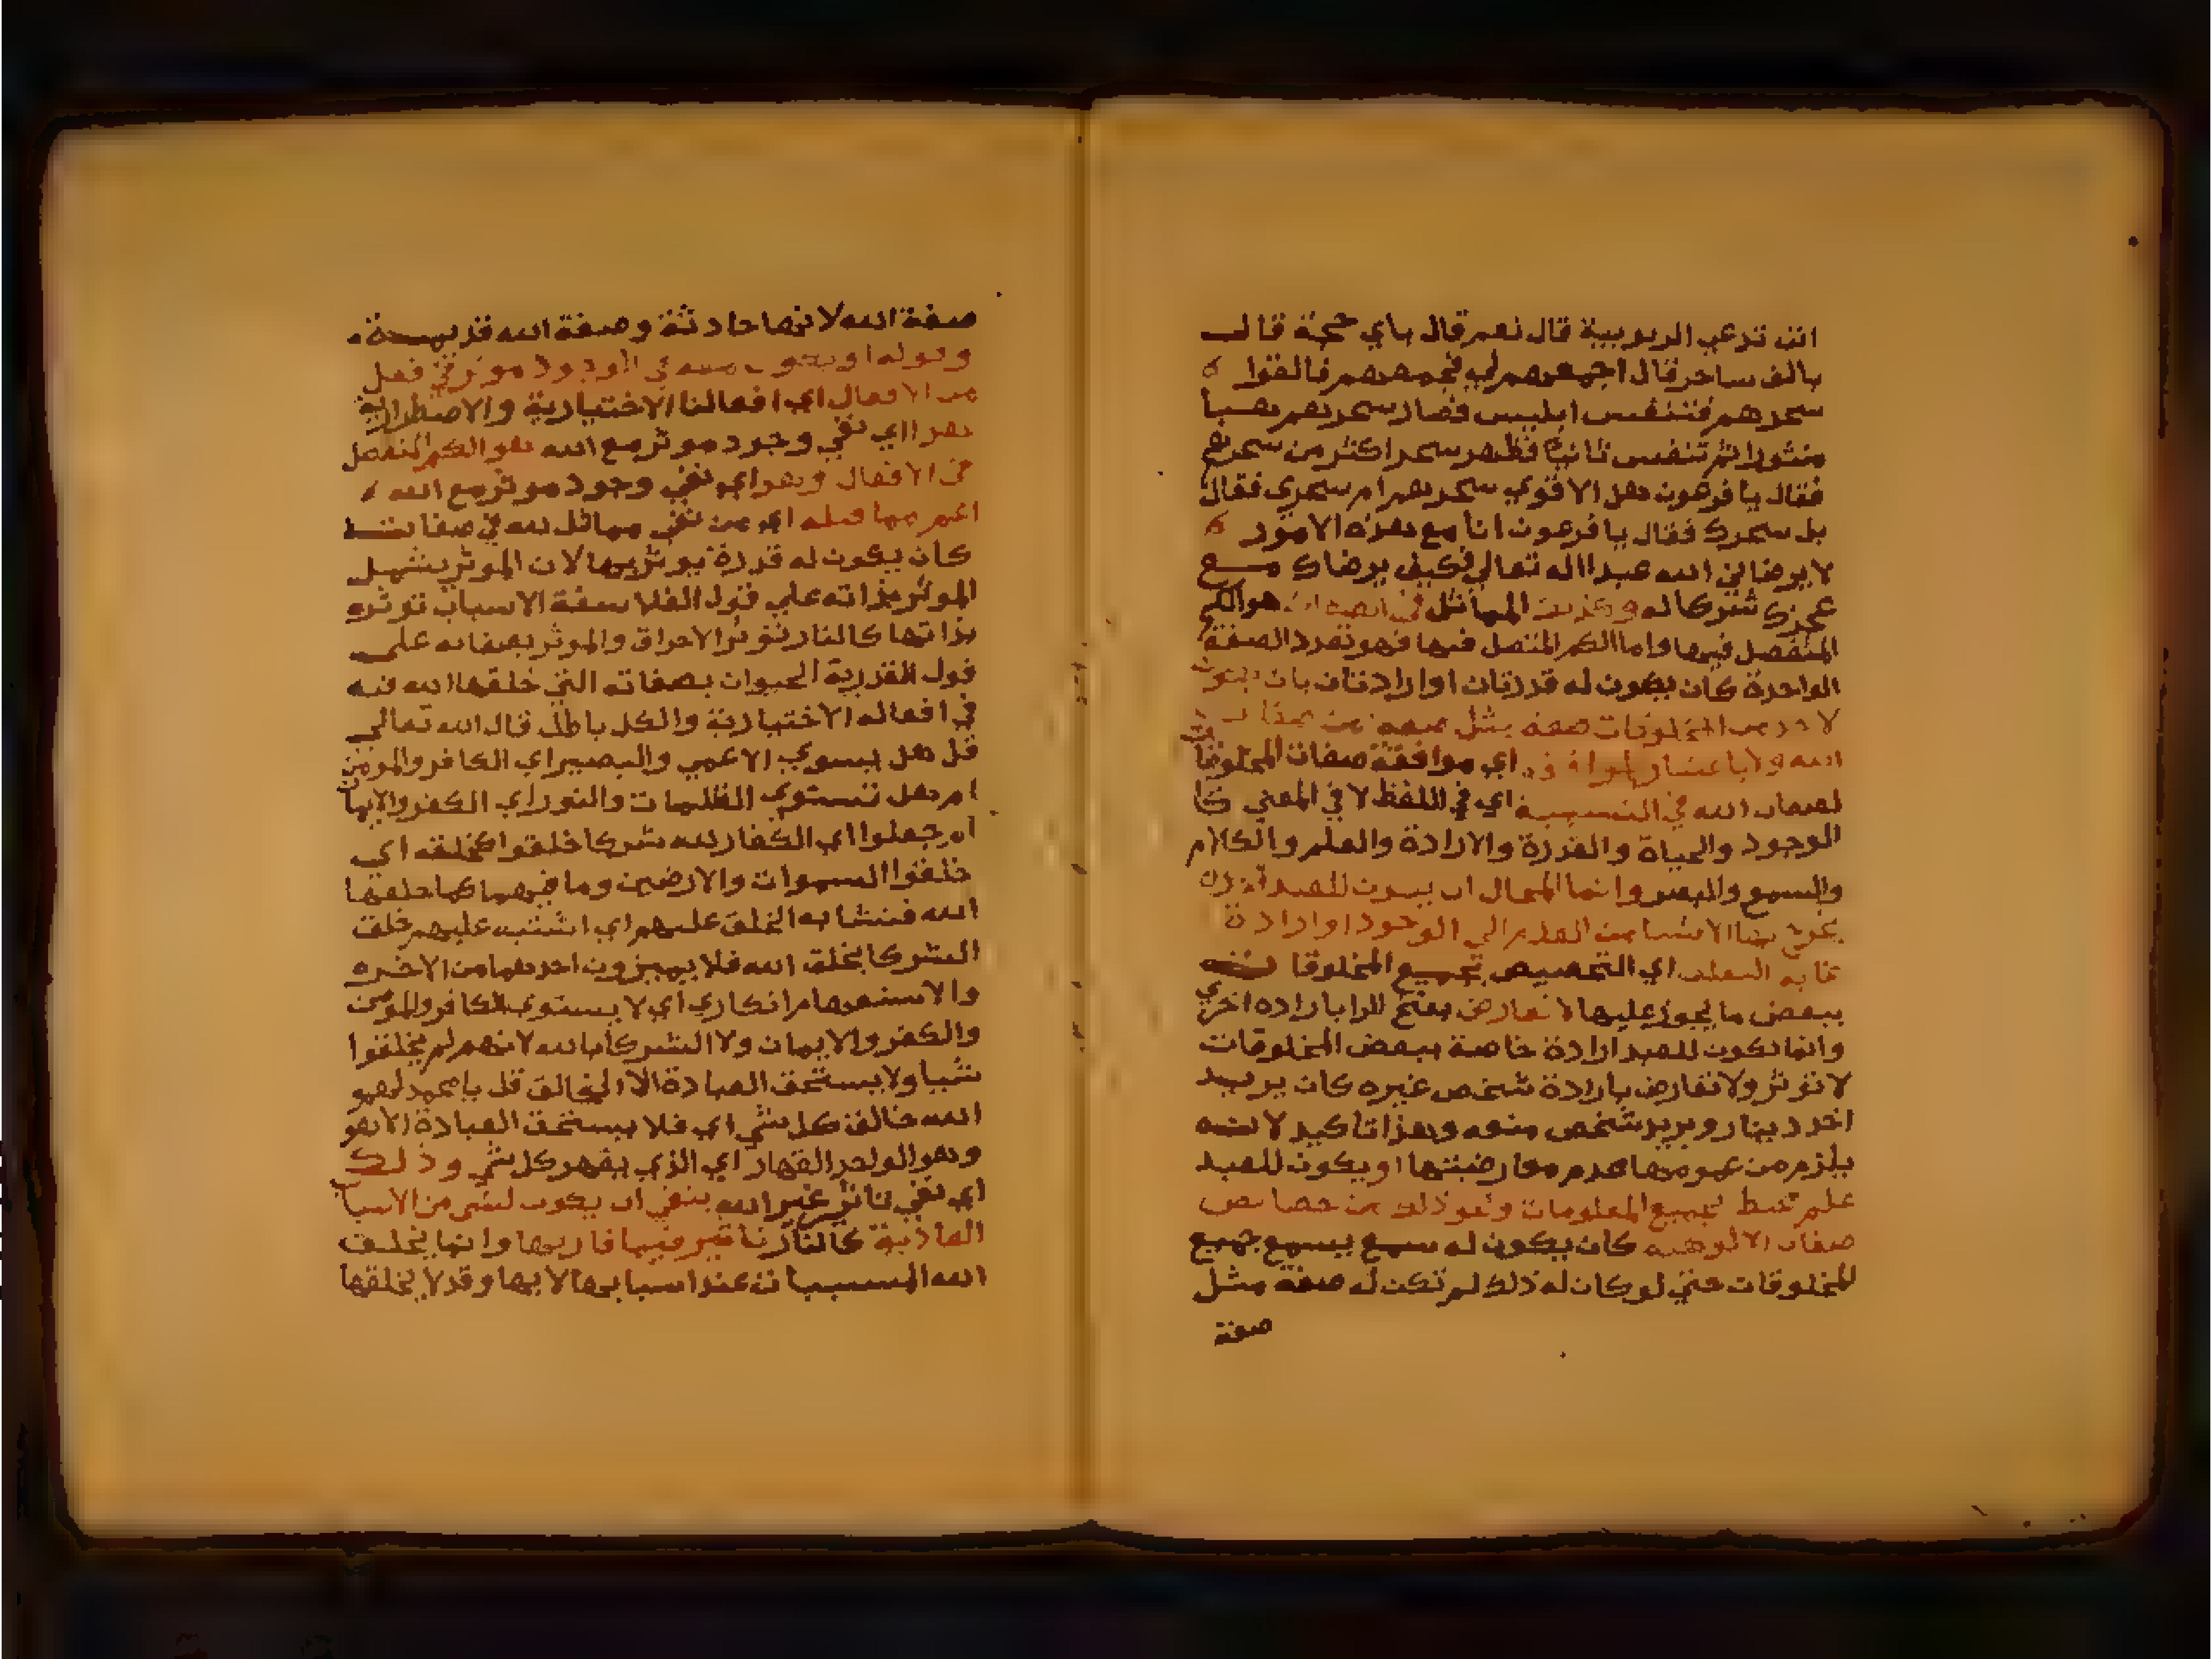 انت تدعي الربوبية قال نعم قال باي حجة قال
بالف ساحر قال اجمعهم لي فجمعهم فالقوا
سحرهم فتنفس ابليس فصار سحرهم هبا
منثورا ثم تنفس ثانيا فظهر سحر اكثر من سحرهم
فقال يا فرعون هل الاقوي سحرهم ام سحري فقال
بل سحرك فقال يا فرعون انا مع هذه الامور
لا يرضاني الله عبدا له تعالي فكيف يرضاك مع
عجزك شركا له المماثل في الصفات هو الكم
المنفصل فيها واما الكم المتصل فيها فهو تعدد الصفة
الواحدة كان يكون له قدرتان او ارادتان بان يكون
لاحد من المخلوقات صفة مثل صفة من صفات
الله ولا باعتبار اي موافقة صفات المخلوقات
لصفات الله في التسمية اي في اللفظ لا في المعني كا
لوجود والحياة والقدرة والارادة والعلم والكلام
والسمع والبصر وانما المحال ان يكون للعبد قدرة
بها الاشيا من العدم الي الوجود او ارادة
اي التخصيص جميع المخلوقات
ببعض ما يجوز عليها لا تعارض بفتح الرا بارادة اخري
وانما تكون للعبد ارادة خاصة ببعض المخلوقات
لا تؤثر ولا تعارض بارادة شخص غيره كان يريد
اخذ دينار ويريد شخص منعه وهذا تاكيد لانه
يلزم من عمومها عدم معارضتها او يكون للعبد
علم محيط بجميع المعلومات ونحو ذلك من خصايص
صفات الالوهية كان يكون له سمع يسمع جميع
المخلوقات حتي لو كان له ذلك لم تكن له صفة مثل
صفة
صفة الله لانها حادثة وصفة الله قديمة
وقوله او يكون معه في الوجود موثر في فعل
من الافعال اي افعالنا الاختيارية والاضطرارية
هذا اي نفي وجود موثر مع الله هو الكم المنفصل
في الافعال وهذا اي نفي وجود موثر مع الله
اعم مما قبله اي من نفي مماثل لله في صفاته
كان يكون له قدرة يوثر بها لان الموثر يشمل
الموثر بذاته علي قول الفلاسفة الاسباب توثر
بذاتها كالنار توثر الاحراق والموثر بصفاته علي
قول القدرية الحيوان بصفاته التي خلقها الله فيه
في افعاله الاختيارية والكل باطل قال الله تعالي
قل هل يستوي الاعمي والبصير اي الكافر والمومن
ام هل تستوي الظلمات والنور اي الكفر والايمان
ام جعلوا اي الكفار لله شركا خلقوا كخلقه اي
خلقوا السموات والارضين وما فيهما كما خلقها
الله فتشابه الخلق عليهم اي اشتبه عليهم خلق
الشركا بخلق الله فلا يميزون احدهما من الاخر
والاستفهام انكاري اي لا يستوي الكافر والمومن
والكفر والايمان ولا الشركا بالله لانهم لم يخلقوا
شيا ولا يستحق العبادة الا الخالق قل يا محمد لهم
الله خالق كل شي اي فلا يستحق العبادة الا هو
وهو الواحد القهار اي الذي يقهر كل شي وذلك
اي نفي تاثر غير الله ينفي ان يكون لشي من الاسباب
العادية كالنار تاثير فيما قاربها وانما يخلق
الله المسببات عند اسبابها لا بها وقد لا يخلقها